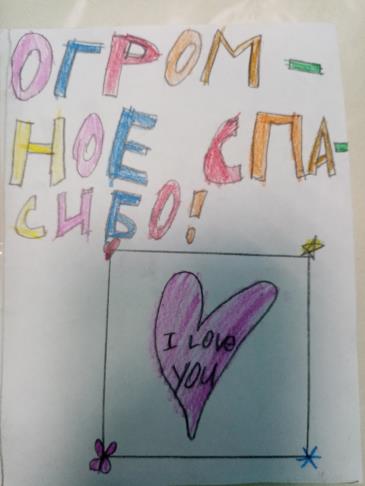 ОГРОМ -
НОЕ СПА-
СИБО!
I LOVE
YOU